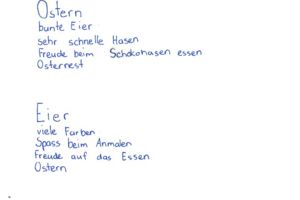 Ostern
bunte Eier
sehr schnelle Hasen
Freude beim Schokohasen essen
Osternest
Eier
viele Farben
Spass beim Anmalen
Freude auf das Essen
Ostern